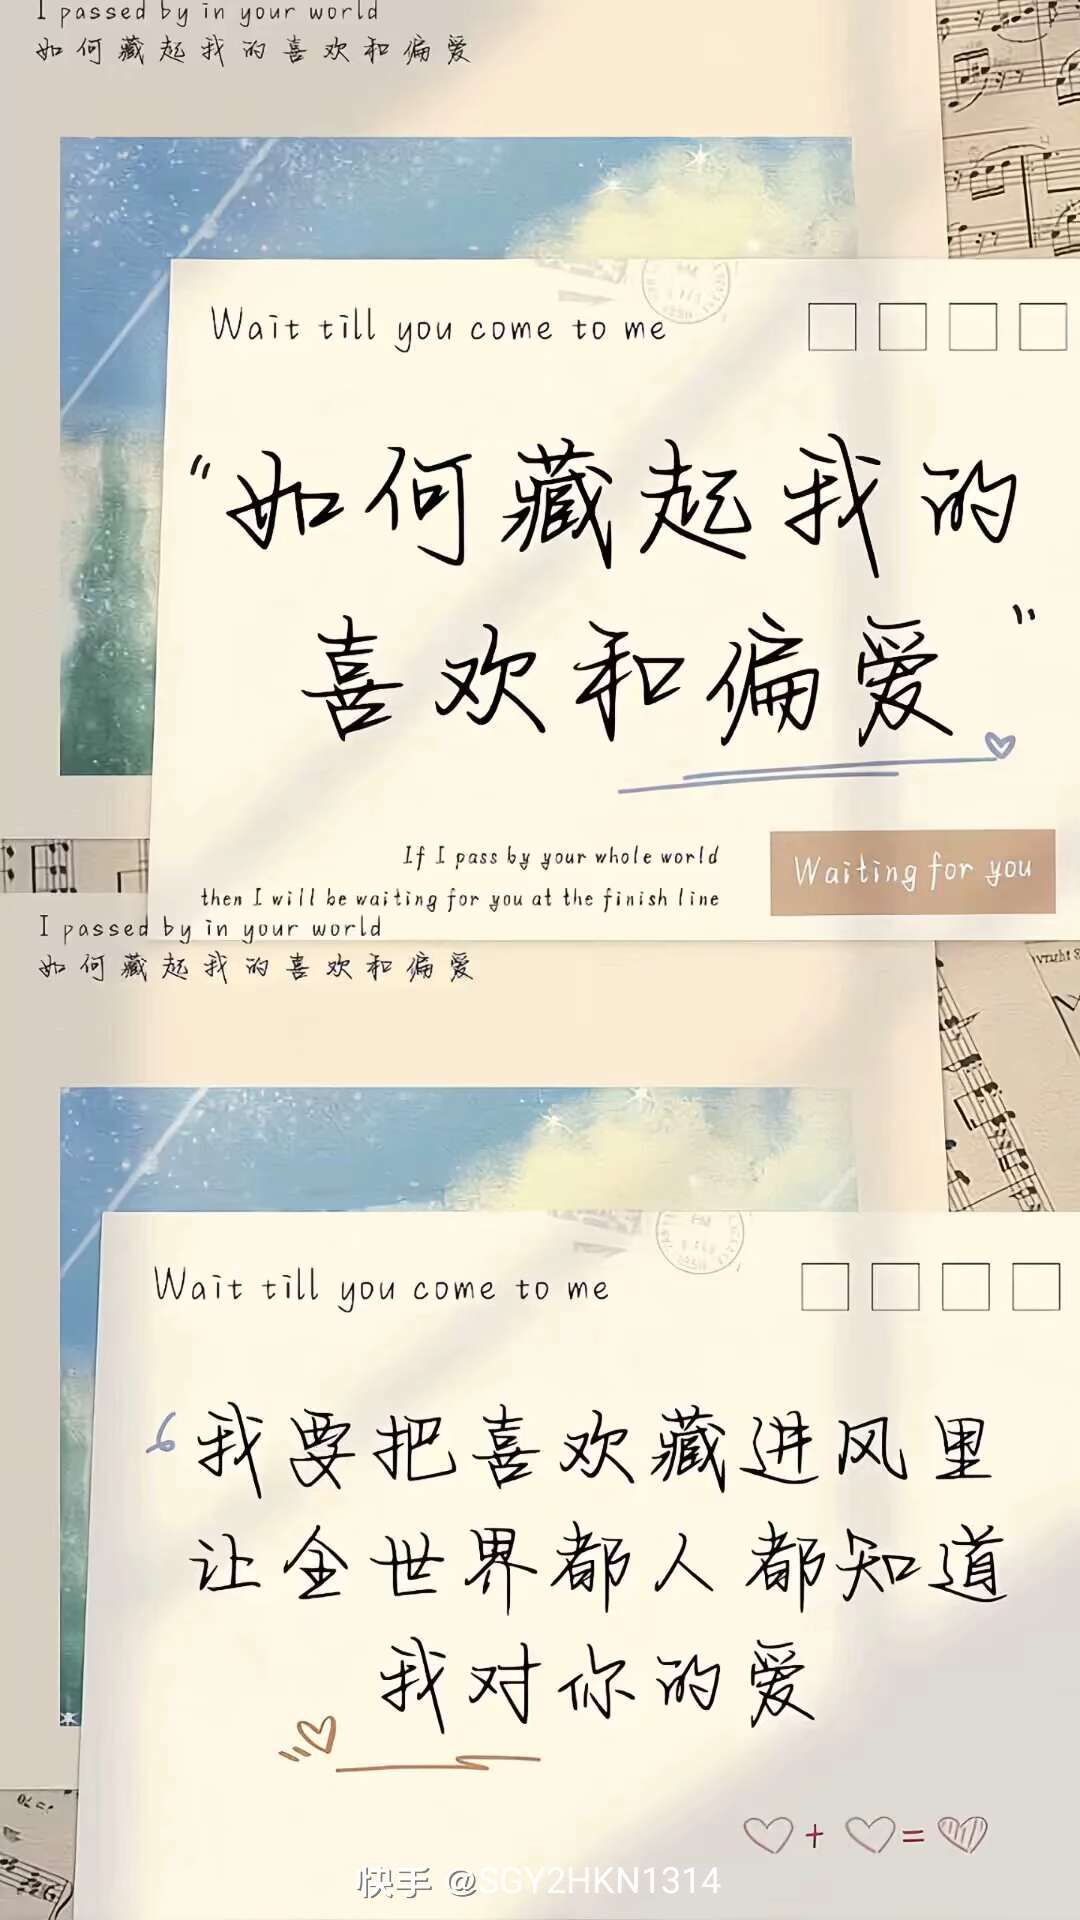 I passed by in your world
如何藏起我的喜欢和偏爱
Wait till you come to me
“如何藏起我的
喜欢和偏爱”
If I pass by your whole world
then I will be waiting for you at the finish line
Waiting for you
I passed by in your world
如何藏起我的喜欢和偏爱
Wait till you come to me
我要把喜欢藏进风里
让全世界都人都知道
我对你的爱
快手 @SGY2HKN1314